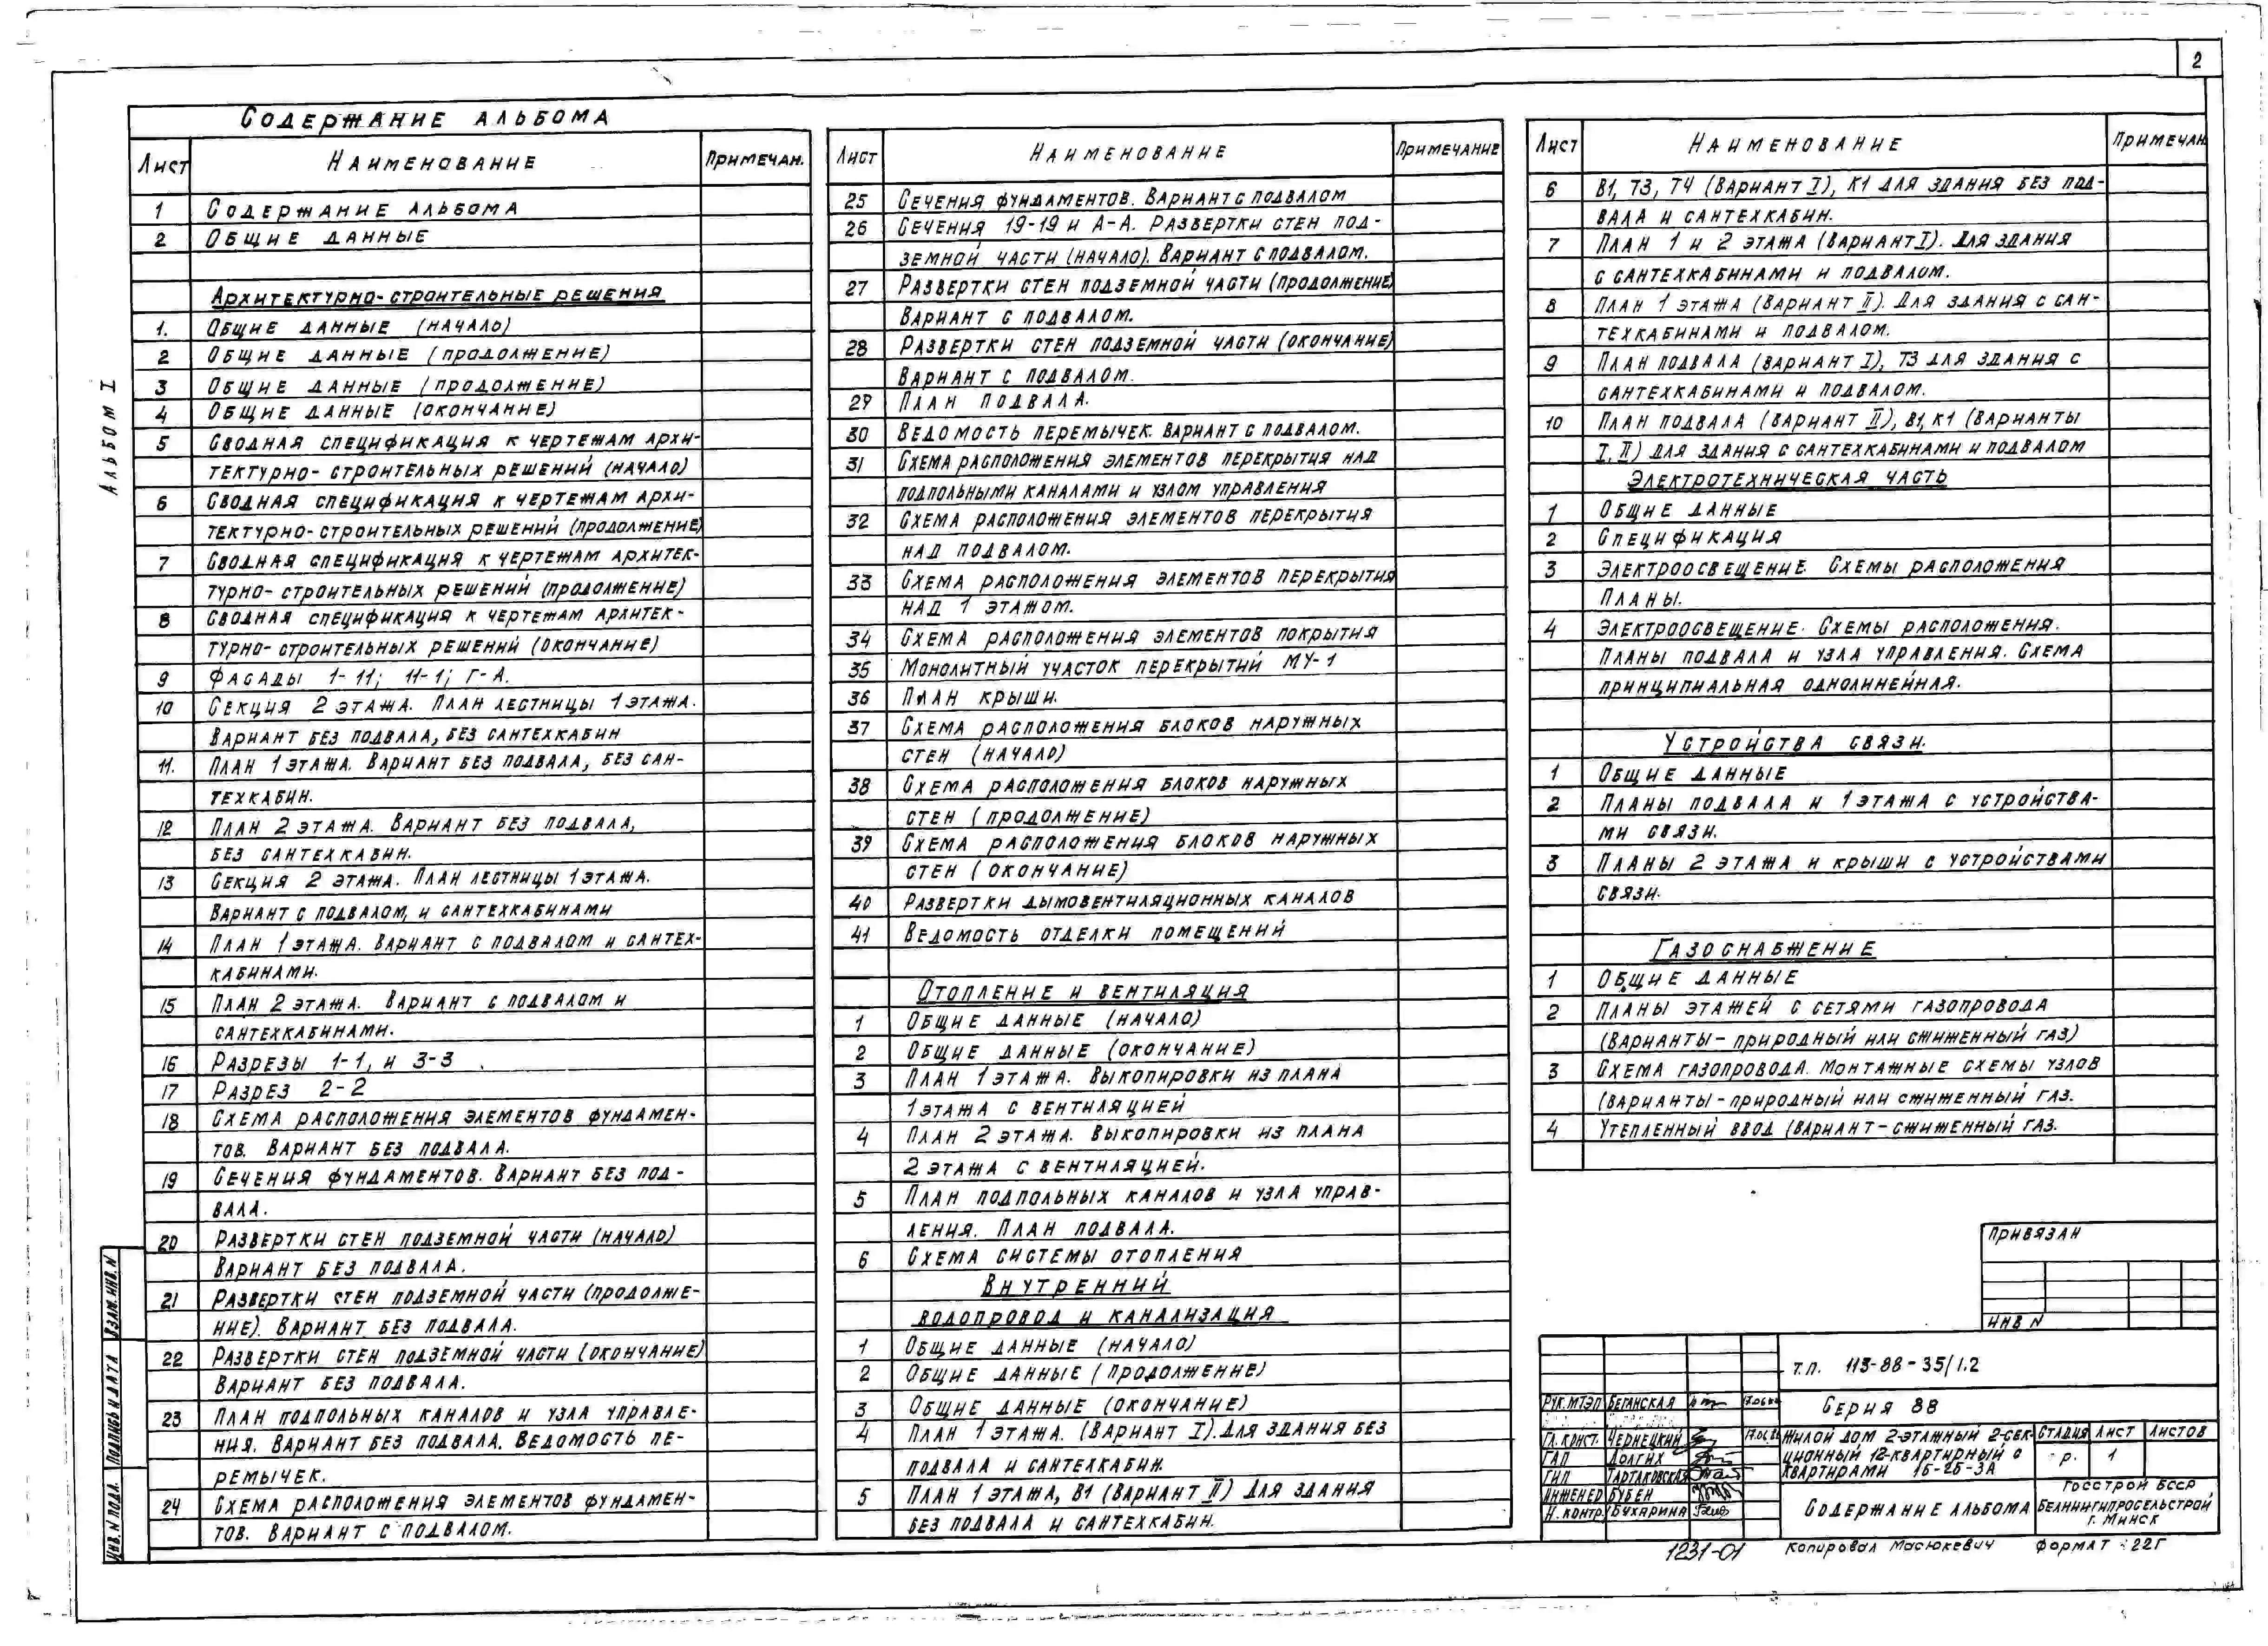 2
Содержание альбома
Альбом I
Лист Наименование Примечан.
1 Содержание альбома
2 Общие данные
Архитектурно-строительные решения
1. Общие данные (начало)
2 Общие данные (продолжение)
3 Общие данные (продолжение)
4 Общие данные (окончание)
5 Сводная спецификация к чертежам архи-
тектурно-строительных решений (начало)
6 Сводная спецификация к чертежам архи-
тектурно-строительных решений (продолжение)
7 Сводная спецификация к чертежам архитек-
турно-строительных решений (продолжение)
8 Сводная спецификация к чертежам архитек-
турно-строительных решений (окончание)
9 Фасады 1-11; 11-1; Г-А.
10 Секция 2 этажа. План лестницы 1 этажа.
Вариант без подвала, без сантехкабин
11. План 1 этажа. Вариант без подвала, без сан-
техкабин.
12 План 2 этажа. Вариант без подвала,
без сантехкабин.
13 Секция 2 этажа. План лестницы 1 этажа.
Вариант с подвалом, и сантехкабинами
14 План 1 этажа. Вариант с подвалом и сантех-
кабинами.
15 План 2 этажа. Вариант с подвалом и
сантехкабинами.
16 Разрезы 1-1, и 3-3
17 Разрез 2-2
18 Схема расположения элементов фундамен-
тов. Вариант без подвала.
19 Сечения фундаментов. Вариант без под-
вала.
20 Развертки стен подземной части (начало)
Вариант без подвала.
21 Развертки стен подземной части (продолже-
ние). Вариант без подвала.
22 Развертки стен подземной части (окончание)
Вариант без подвала.
23 План подпольных каналов и узла управле-
ния. Вариант без подвала. Ведомость пе-
ремычек.
24 Схема расположения элементов фундамен-
тов. Вариант с подвалом.
Лист Наименование Примечание
25 Сечения фундаментов. Вариант с подвалом
26 Сечения 19-19 и А-А. Развертки стен под-
земной части (начало). Вариант с подвалом.
27 Развертки стен подземной части (продолжение)
Вариант с подвалом.
28 Развертки стен подземной части (окончание)
Вариант с подвалом.
29 План подвала.
30 Ведомость перемычек. Вариант с подвалом.
31 Схема расположения элементов перекрытия над
подпольными каналами и узлом управления
32 Схема расположения элементов перекрытия
над подвалом.
33 Схема расположения элементов перекрытия
над 1 этажом.
34 Схема расположения элементов покрытия
35 Монолитный участок перекрытий МУ-1
36 План крыши.
37 Схема расположения блоков наружных
стен (начало)
38 Схема расположения блоков наружных
стен (продолжение)
39 Схема расположения блоков наружных
стен (окончание)
40 Развертки дымовентиляционных каналов
41 Ведомость отделки помещений
Отопление и вентиляция
1 Общие данные (начало)
2 Общие данные (окончание)
3 План 1 этажа. Выкопировки из плана
1 этажа с вентиляцией
4 План 2 этажа. Выкопировки из плана
2 этажа с вентиляцией.
5 План подпольных каналов и узла управ-
ления. План подвала.
6 Схема системы отопления
Внутренний
водопровод и канализация
1 Общие данные (начало)
2 Общие данные (продолжение)
3 Общие данные (окончание)
4 План 1 этажа. (Вариант I). Для здания без
подвала и сантехкабин.
5 План 1 этажа, В1 (Вариант II) Для здания
без подвала и сантехкабин.
Лист Наименование Примечан
6 В1, Т3, Т4 (Вариант I), К1 для здания без под-
вала и сантехкабин.
7 План 1 и 2 этажа (Вариант I). Для здания
с сантехкабинами и подвалом.
8 План 1 этажа (Вариант II). Для здания с сан-
техкабинами и подвалом.
9 План подвала (вариант I), Т3 для здания с
сантехкабинами и подвалом.
10 План подвала (вариант II), В1, К1 (Варианты
I, II) для здания с сантехкабинами и подвалом
Электротехническая часть
1 Общие данные
2 Спецификация
3 Электроосвещение. Схемы расположения
Планы.
4 Электроосвещение. Схемы расположения.
Планы подвала и узла управления. Схема
принципиальная однолинейная.
Устройства связи.
1 Общие данные
2 Планы подвала и 1 этажа с устройства-
ми связи.
3 Планы 2 этажа и крыши с устройствами
связи.
Газоснабжение
1 Общие данные
2 Планы этажей с сетями газопровода
(Варианты - природный или сжиженный газ)
3 Схема газопровода. Монтажные схемы узлов
(варианты - природный или сжиженный газ.
4 Утепленный ввод (вариант - сжиженный газ.
Привязан
Инв N
Взам. инв. N
Подпись и дата
Инв. N подл.
Т.П. 113-88-35/1.2
Серия 88
Рук. МТЭП Беганская
Гл. конст. Чернецкий
ГАП Долгих
ГИП Тартаковская
Инженер Бубен
Н. контр. Бухарина
Жилой дом 2-этажный 2-сек-
ционный 12-квартирный с
квартирами 1Б-2Б-3А
Стадия Лист Листов
р. 1
Содержание альбома
Госстрой БССР
Белниигипросельстрой
г. Минск
1231-01 Копировал Масюкевич Формат 22Г